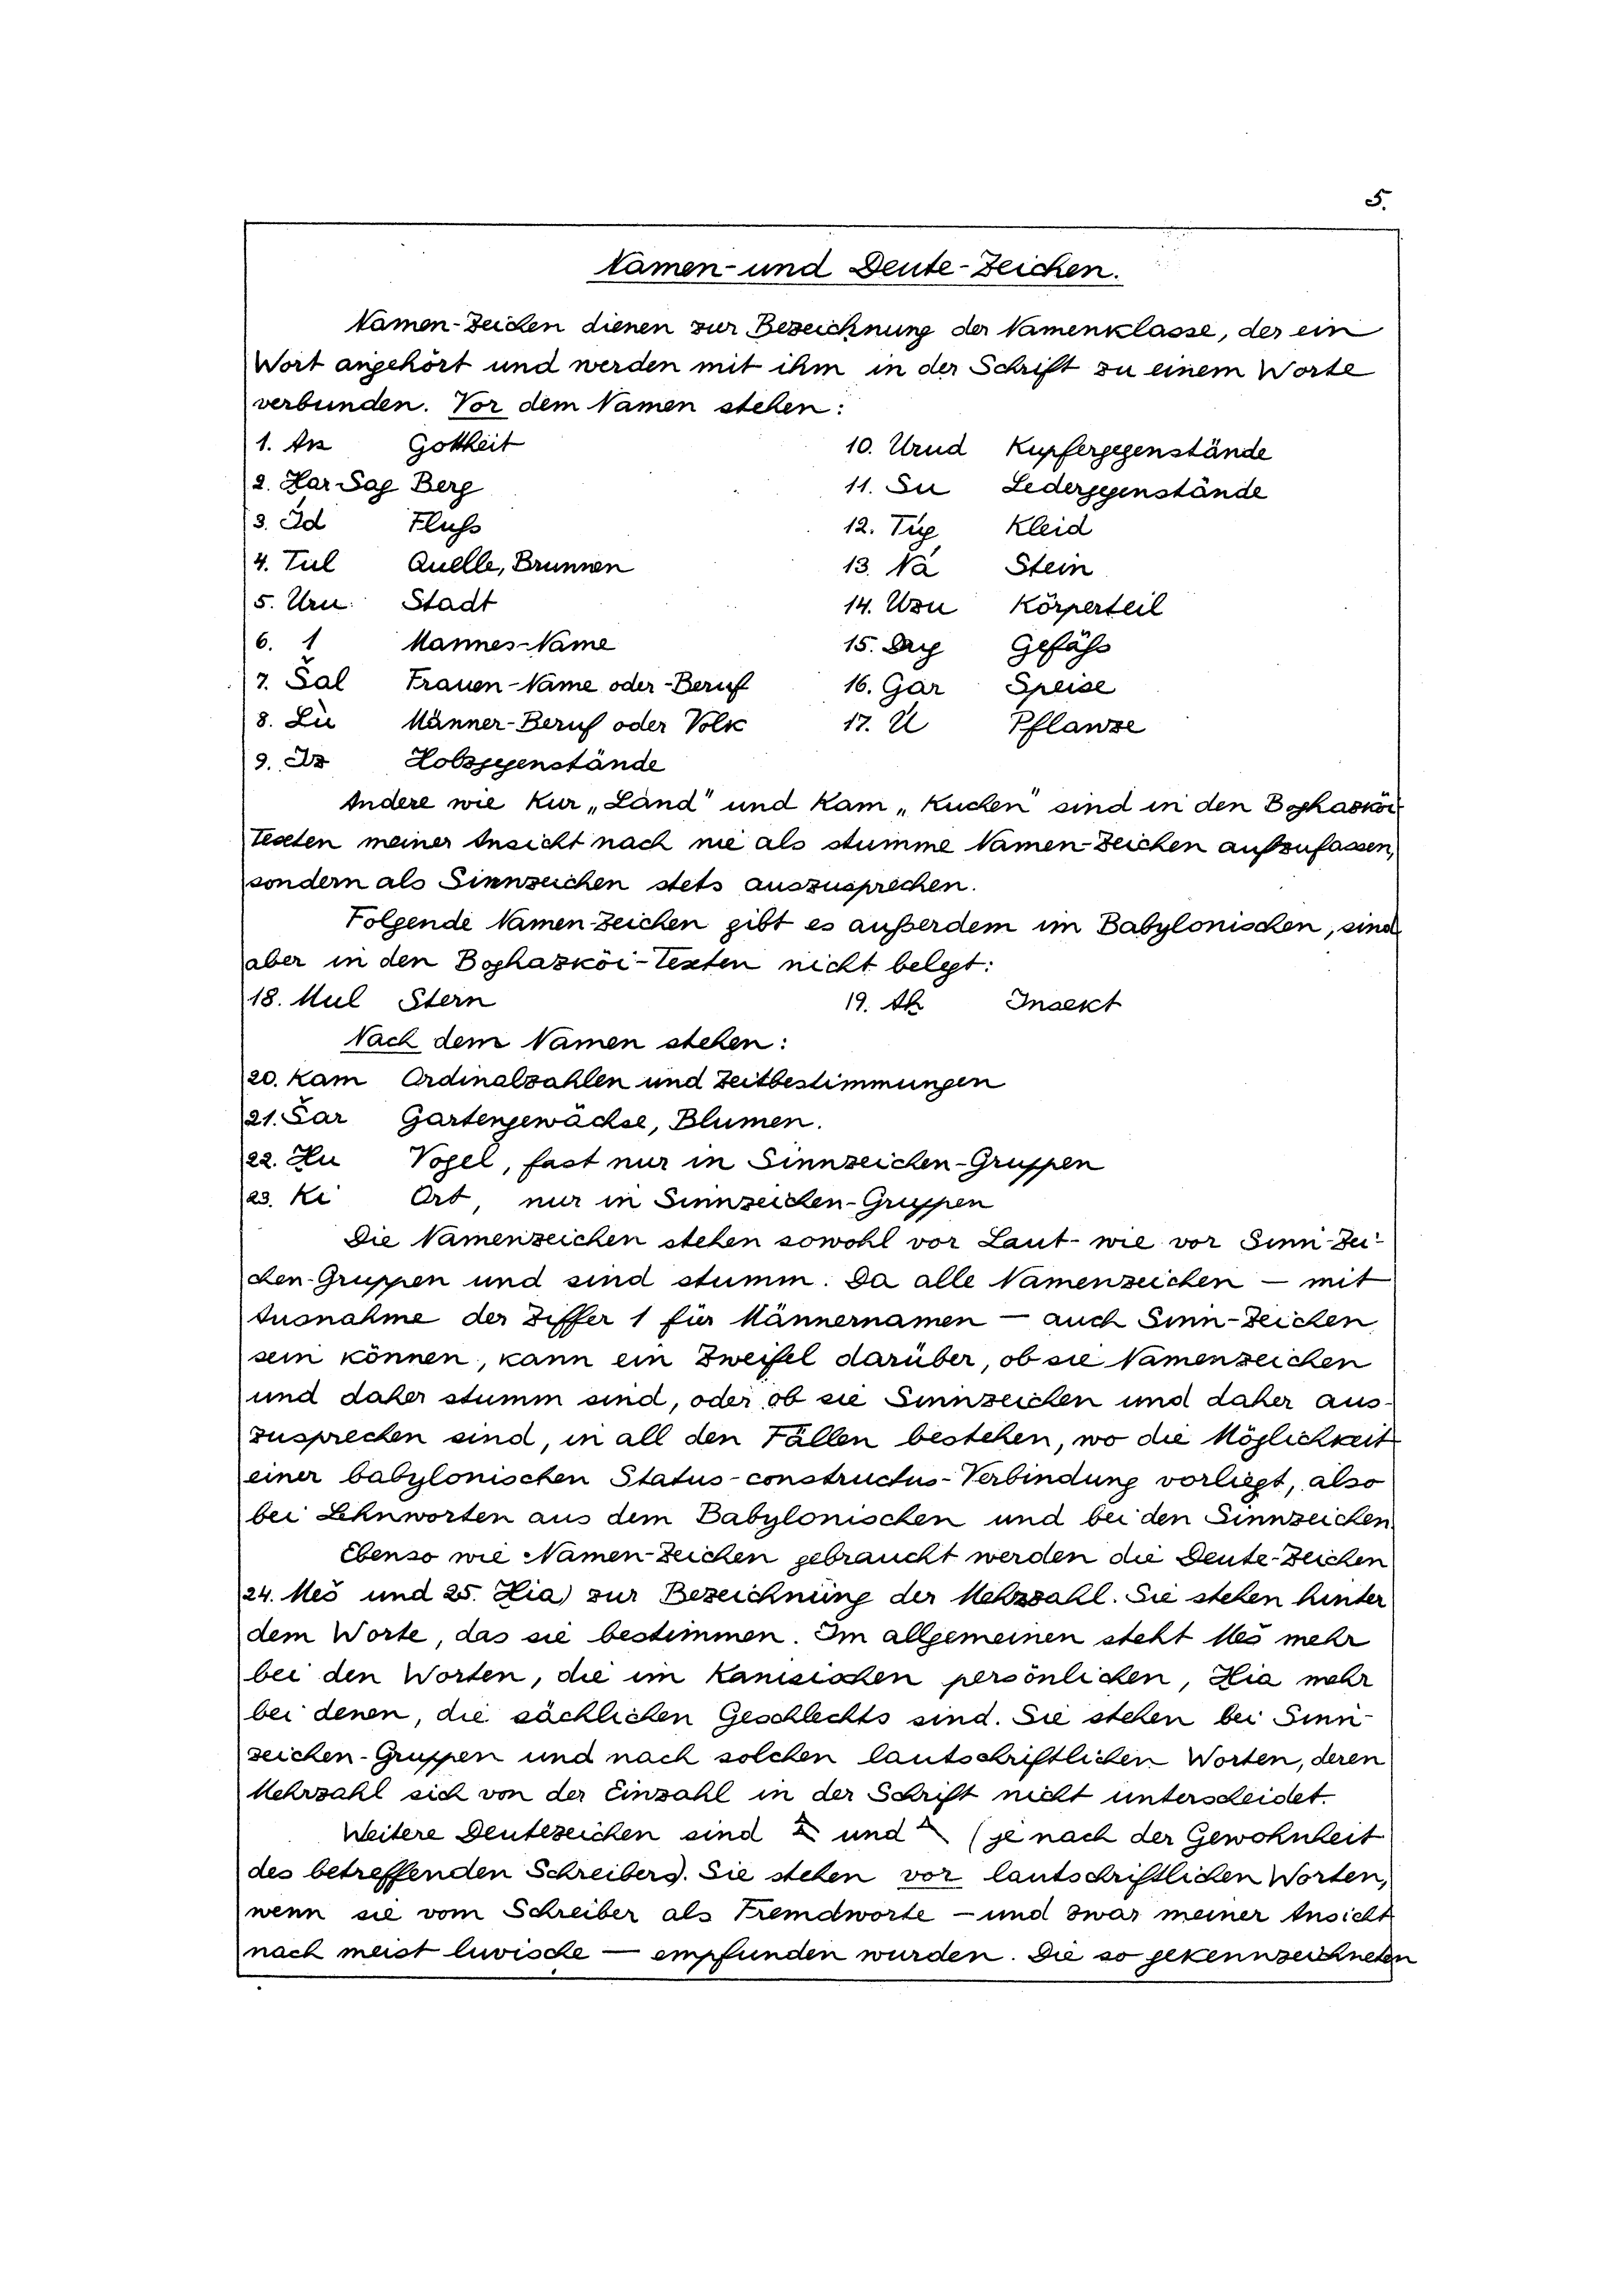 5.
Namen- und Deute-Zeichen.
Namen-Zeichen dienen zur Bezeichnung der Namenklasse, der ein
Wort angehört und werden mit ihm in der Schrift zu einem Worte
verbunden. Vor dem Namen stehen:
1. An Gottheit
2. Har-Sag Berg
3. Id Fluß
4. Túl Quelle, Brunnen
5. Uru Stadt
6. 1 Mannes-Name
7. Šal Frauen-Name oder -Beruf
8. Lù Männer-Beruf oder Volk
9. Iz Holzgegenstände
10. Urud Kupfergegenstände
11. Su Ledergegenstände
12. Túg Kleid
13. Ná Stein
14. Uzu Körperteil
15. Dug Gefäß
16. Gar Speise
17. Ú Pflanze
Andere wie Kur „Land" und Kam „Kuchen" sind in den Boghazköi-
Texten meiner Ansicht nach nie als stumme Namen-Zeichen aufzufassen,
sondern als Sinnzeichen stets auszusprechen.
Folgende Namen-Zeichen gibt es außerdem im Babylonischen, sind
aber in den Boghazköi-Texten nicht belegt:
18. Mul Stern
19. Ah Insekt
Nach dem Namen stehen:
20. Kam Ordinalzahlen und Zeitbestimmungen
21. Šar Gartengewächse, Blumen.
22. Hu Vogel, fast nur in Sinnzeichen-Gruppen
23. Ki Ort, nur in Sinnzeichen-Gruppen
Die Namenzeichen stehen sowohl vor Laut- wie vor Sinn-Zei-
chen-Gruppen und sind stumm. Da alle Namenzeichen – mit
Ausnahme der Ziffer 1 für Männernamen – auch Sinn-Zeichen
sein können, kann ein Zweifel darüber, ob sie Namenzeichen
und daher stumm sind, oder ob sie Sinnzeichen und daher aus-
zusprechen sind, in all den Fällen bestehen, wo die Möglichkeit
einer babylonischen Status-constructus-Verbindung vorliegt, also
bei Lehnworten aus dem Babylonischen und bei den Sinnzeichen.
Ebenso wie Namen-Zeichen gebraucht werden die Deute-Zeichen
24. Meš und 25. Hia) zur Bezeichnung der Mehrzahl. Sie stehen hinter
dem Worte, das sie bestimmen. Im allgemeinen steht Meš mehr
bei den Worten, die im Kanisischen persönlichen, Hia mehr
bei denen, die sächlichen Geschlechts sind. Sie stehen bei Sinn-
zeichen-Gruppen und nach solchen lautschriftlichen Worten, deren
Mehrzahl sich von der Einzahl in der Schrift nicht unterscheidet.
Weitere Deutezeichen sind und (je nach der Gewohnheit
des betreffenden Schreibers). Sie stehen vor lautschriftlichen Worten,
wenn sie vom Schreiber als Fremdworte – und zwar meiner Ansicht
nach meist luvische – empfunden wurden. Die so gekennzeichneten